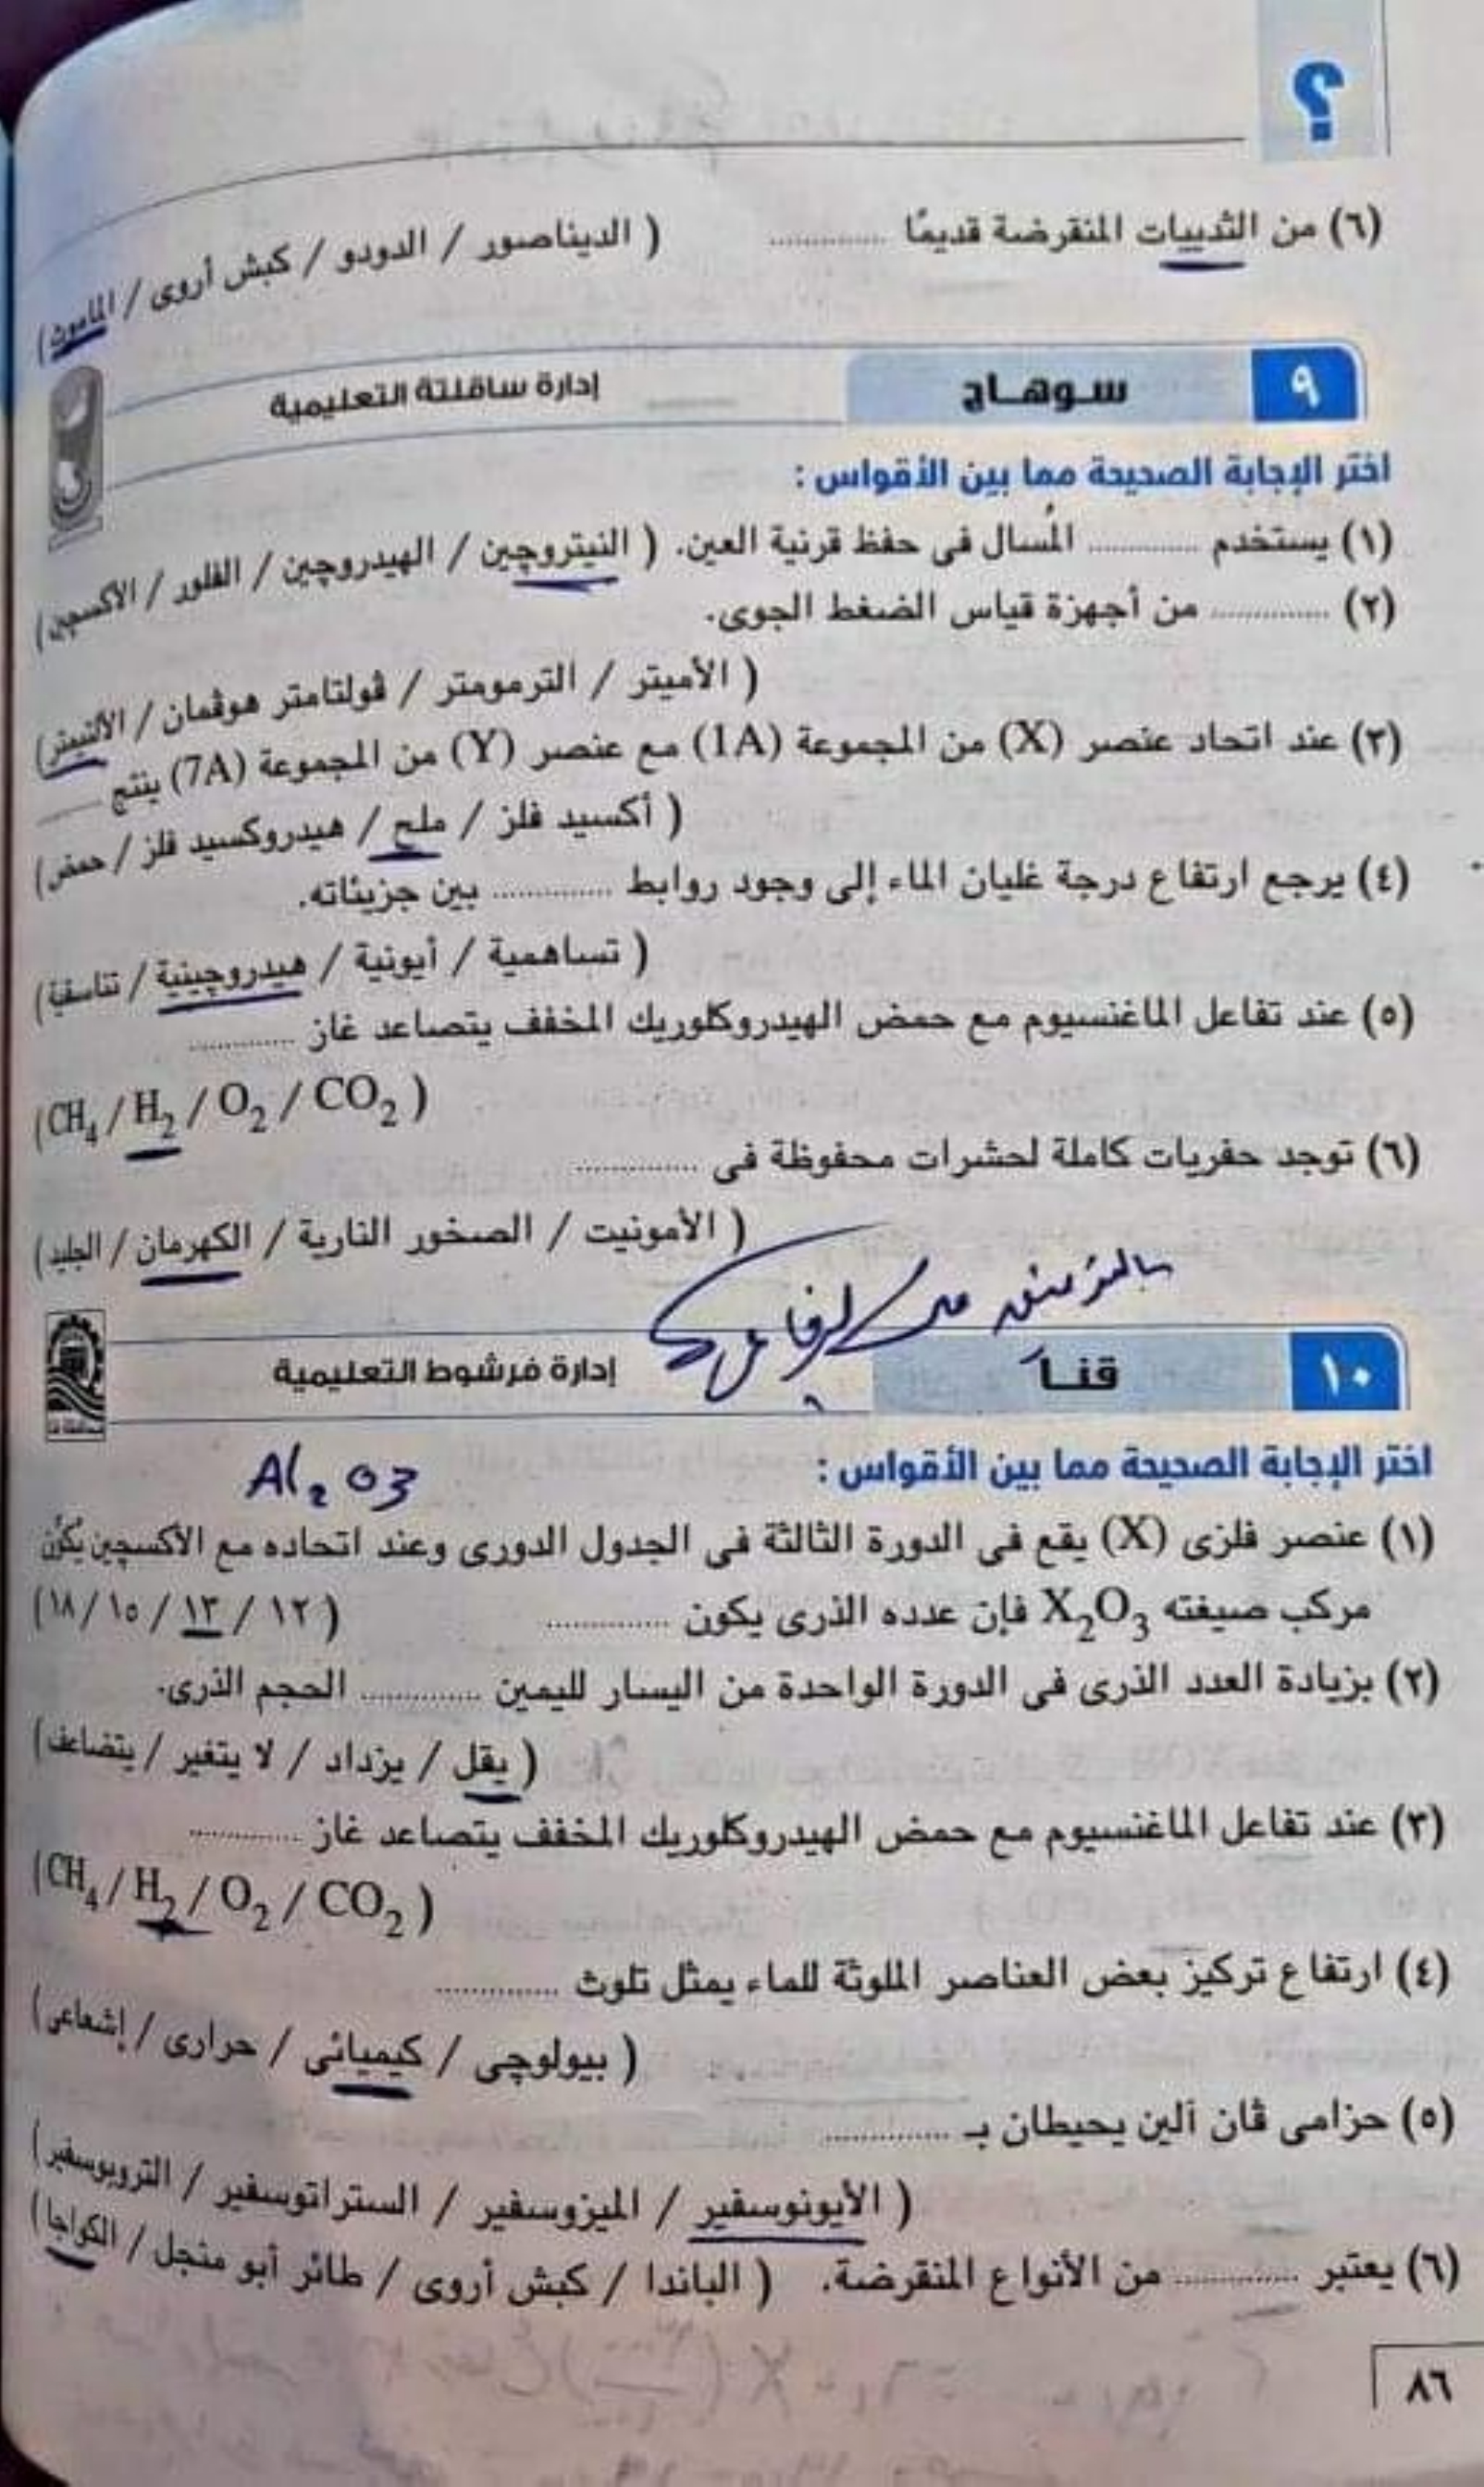 ؟
(٦) من الثدييات المنقرضة قديمًا .............. ( الديناصور / الدودو / كبش أروى / الماموث)
٩ سوهـاج إدارة ساقلتة التعليمية
اختر الإجابة الصحيحة مما بين الأقواس :
(١) يستخدم .............. المُسال فى حفظ قرنية العين. ( النيتروچين / الهيدروچين / الفلور / الأكسچين)
(٢) .............. من أجهزة قياس الضغط الجوى.
( الأميتر / الترمومتر / ڤولتامتر هوڤمان / الألتيمتر)
(٣) عند اتحاد عنصر (X) من المجموعة (1A) مع عنصر (Y) من المجموعة (7A) ينتج ........
( أكسيد فلز / ملح / هيدروكسيد فلز / حمض)
(٤) يرجع ارتفاع درجة غليان الماء إلى وجود روابط .............. بين جزيئاته.
( تساهمية / أيونية / هيدروچينية / تناسقية)
(٥) عند تفاعل الماغنسيوم مع حمض الهيدروكلوريك المخفف يتصاعد غاز ..............
(CH₄ / H₂ / O₂ / CO₂ )
(٦) توجد حفريات كاملة لحشرات محفوظة فى ..............
( الأمونيت / الصخور النارية / الكهرمان / الجليد)
١٠ قنـا إدارة فرشوط التعليمية
Al₂O3
اختر الإجابة الصحيحة مما بين الأقواس :
(١) عنصر فلزى (X) يقع فى الدورة الثالثة فى الجدول الدورى وعند اتحاده مع الأكسچين يكوِّن
مركب صيغته X₂O₃ فإن عدده الذرى يكون .............. ( ١٢ / ١٣ / ١٥ / ١٨)
(٢) بزيادة العدد الذرى فى الدورة الواحدة من اليسار لليمين .............. الحجم الذرى.
( يقل / يزداد / لا يتغير / يتضاعف)
(٣) عند تفاعل الماغنسيوم مع حمض الهيدروكلوريك المخفف يتصاعد غاز ..............
(CH₄ / H₂ / O₂ / CO₂ )
(٤) ارتفاع تركيز بعض العناصر الملوثة للماء يمثل تلوث ..............
( بيولوچى / كيميائى / حرارى / إشعاعى)
(٥) حزامى ڤان ألين يحيطان بـ ..............
( الأيونوسفير / الميزوسفير / الستراتوسفير / التروبوسفير)
(٦) يعتبر .............. من الأنواع المنقرضة. ( الباندا / كبش أروى / طائر أبو منجل / الكواجا)
٨٦